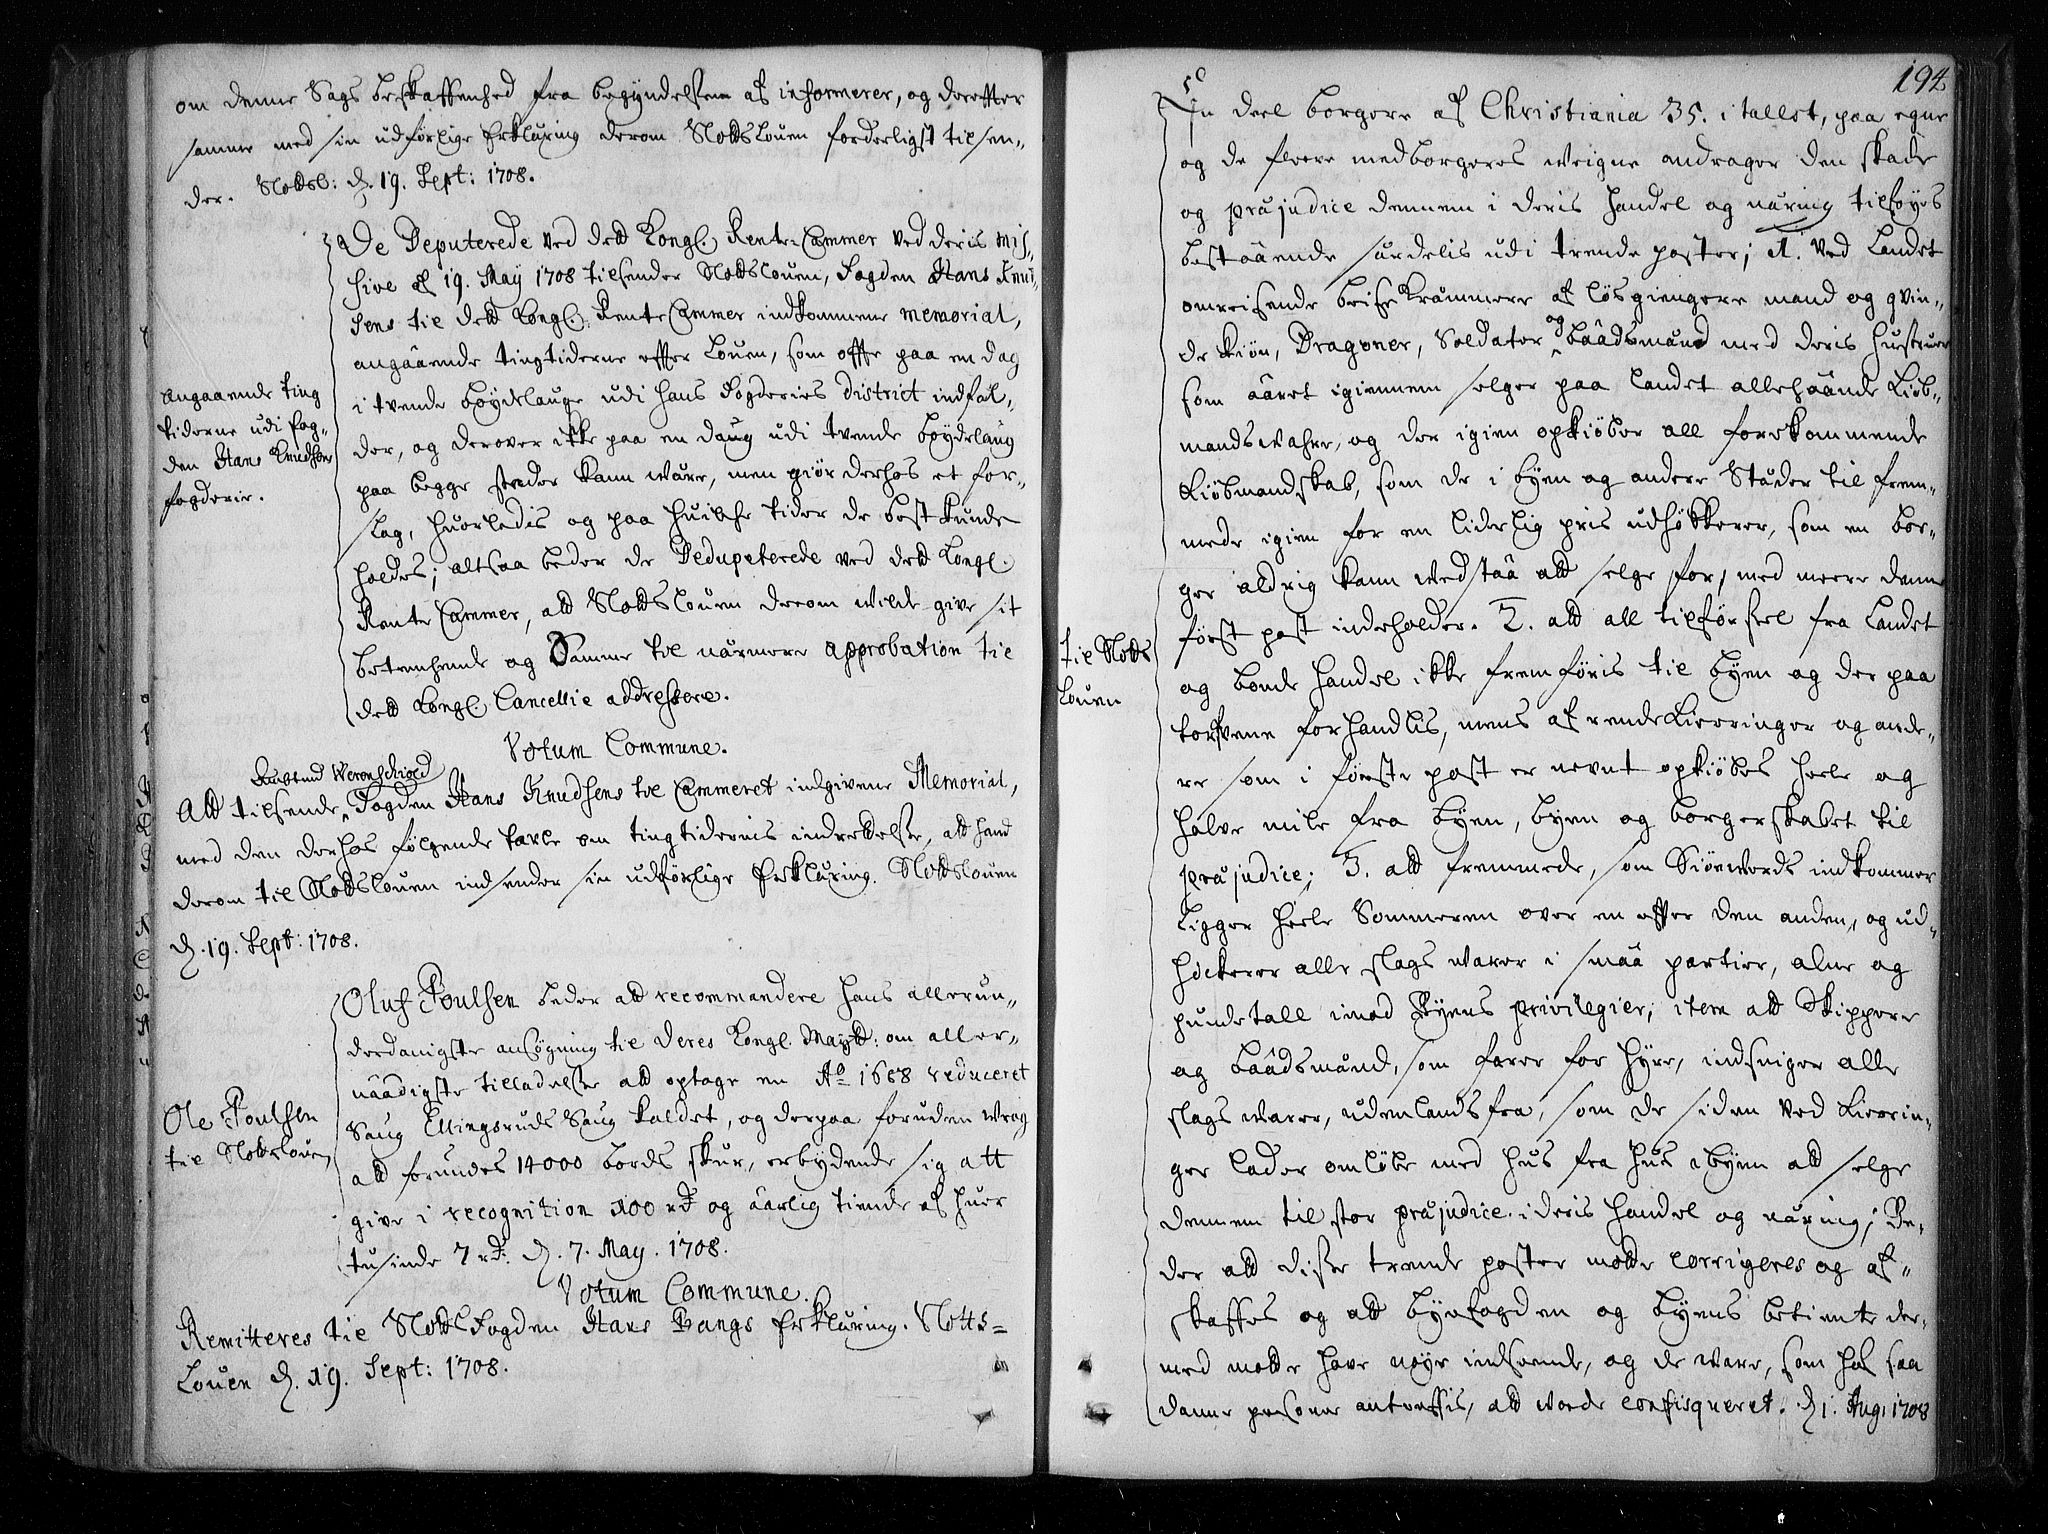 om denne Sags beskaffenhed fra begyndelsen at informerer, og derefter
samme med sin udførlige Erklæring derom Slottslouen forderligst tilsen-
der. Slottsl: d. 19. Sept: 1708.
De Deputerede ved dett Kongl. Rente Cammer ved deris mis-
sive af 19. May 1708 tilsender Slottslouen, Fogden Hans Knud-
sens til dett Kongl. Rente Cammer indkommene memorial,
angaaende tingtiderne efter Louen, som offte paa en dag
i tvende bøydelauge udi hans Fogderies district indfal-
der, og derover ikke paa en daug udi tvende bøydelaug
paa begge steder kann være, men giør derhos et for-
slag, huorledis og paa huilche tider de best kunde
holdes; altsaa beder de Dedupeterede ved dett Kongl.
Rente Cammer, att Slottslouen derom wilde give sit
betenchende og samme til nærmere approbation til
dett Kongl. Cancellie addressere.
Angaaende ting
tiderne udi fog-
den Hans Knudsens
fogderie.
Votum Commune.
Amtmd Werenschiold
Att tilsende Fogden Hans Knudsens til Cammeret indgivene Memorial,
med den derhos følgende tavle om tingtidernis indrettelse, att hand
derom til Slottslouen indsender sin udførlige Erklæring. Slottslouen
d. 19. Sept: 1708.
Oluf Poulsen beder att recommandere hans allerun-
derdanigste ansøgning til Deres Kongl. Maytt: om aller-
naadigste tilladelse att optage en Ao 1688 reduceret
Saug Ellingsruds Saug kaldet, og derpaa foruden wrag
att forundes 14000 bords skur, erbydende sig att
give i recognition 100 rd og aarlig tiende af huer
tusinde 7 rd. d. 7. May. 1708.
Ole Poulsen
til Slottslouen
Votum Commune.
Remitteres til Slottsfogden Hans Bangs Erklæring. Slotts-
Louen d. 19. Sept: 1708.
194
En deel borgere af Christiania 35. i tallet, paa egne
og de fleere medborgeres weigne andrager den skade
og præjudice dennem i deris handel og næring tilføyes
bestaaende særdelis udi trende poster; 1. Ved Landet
omreisende Kræmmere af løsgiengere mand og qvin-
de kiøn, Dragoner, Soldater og baadsmænd med deris hustruer
som aaret igiennem selger paa landet allehaande Kiøb-
mandswahre, og der igien opkiøber all forekommende
Kiøbmandskab, som de i byen og andere Stæder til frem-
mede igien for en liderlig pris udhøkkerer, som en bor-
ger aldrig kann wedstaa att selge for, med meere denne
først post indeholder. 2. att all tilførsel fra Landet
og bonde handel ikke fremføris til byen og der paa
torfvene forhandlis, mens af rende Kierringer og ande-
re som i første post er nevnt opkiøbes heele og
halve mile fra byen, byen og borgerskabet til
præjudice; 3. att fremmede, som Siøewerds indkommer
Ligger heele Sommeren over en efter den anden, og ud-
høckerer alle slags warer i smaa partier, alne og
pundetall imod Byens privilegier, item att Skippere
og baadsmænd, som farer for hyre, indsniger alle
slags warer, udenlandsfra, som de siden ved Kierin-
ger lader omløbe med hus fra hus i byen att selge
dennem til stor præjudice i deris handel og næring; Be-
der att disse trende poster motte corrigeres og af-
skaffes og att byefogden og byens betiente der-
med motte have nøye indseende, og de ware, som hos saa
danne personer antreffis, att worde confisqueret. d 1. Aug. 1708
til Slotts
Louen